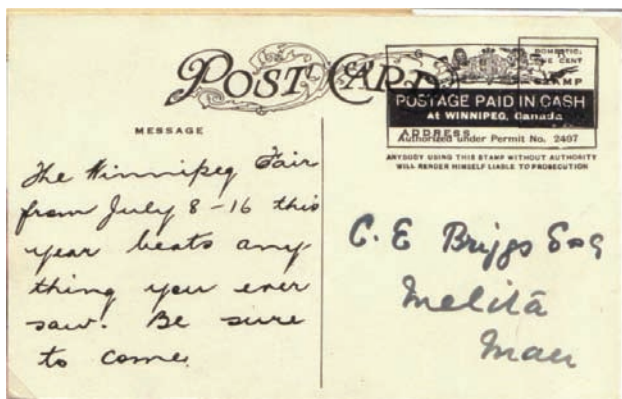 POST CARD
DOMESTIC,
ONE CENT
STAMP
POSTAGE PAID IN CASH
At WINNIPEG, Canada
ADDRESS
Authorized under Permit No. 2497
ANYBODY USING THIS STAMP WITHOUT AUTHORITY
WILL RENDER HIMSELF LIABLE TO PROSECUTION
MESSAGE
The Winnipeg Fair
from July 8-16 this
year beats any
thing you ever
saw. Be sure
to come.
C. E Briggs Esq
Melita
Man